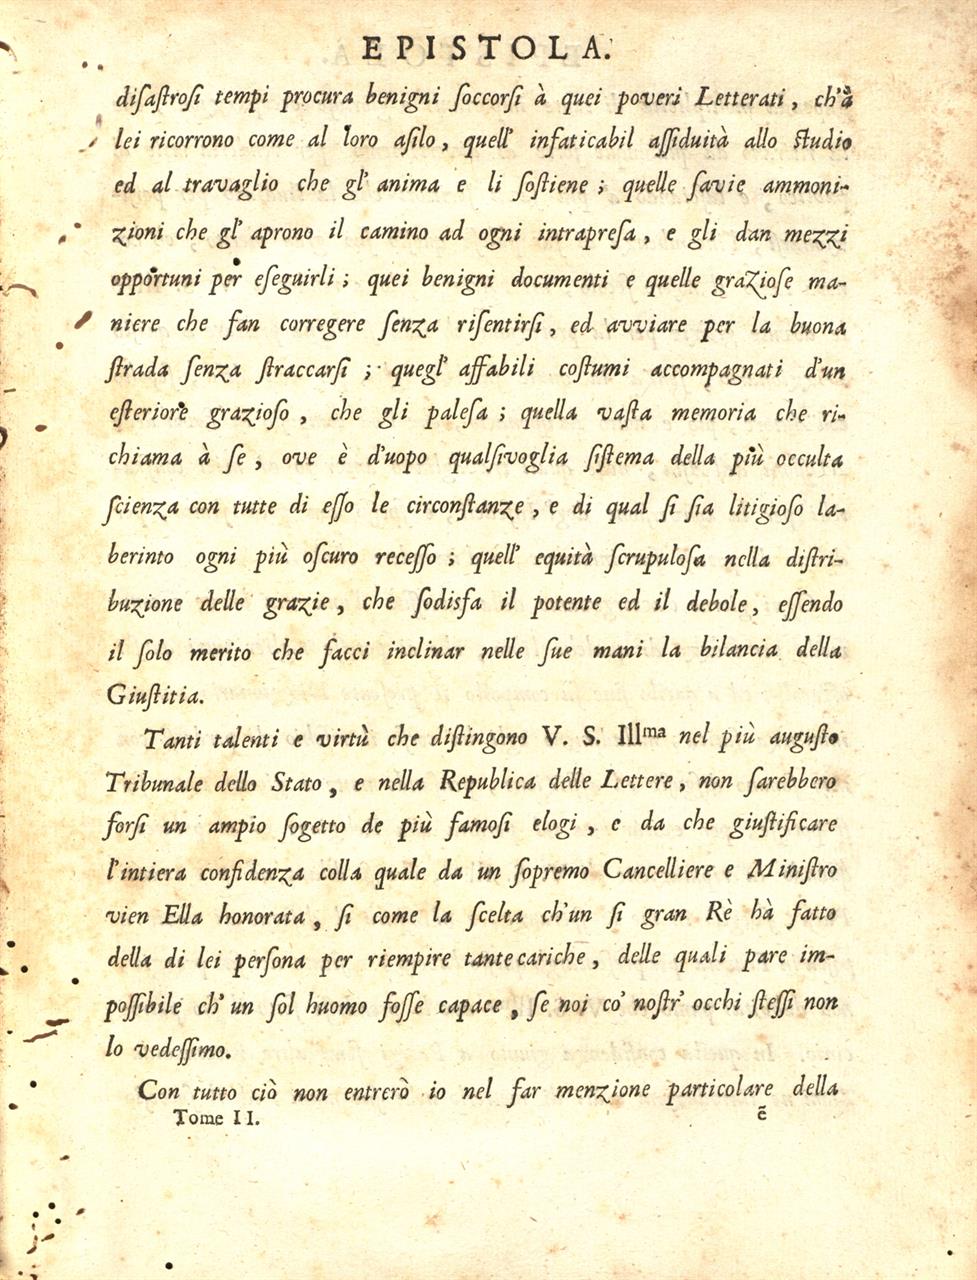 EPISTOLA.
disaſtroſi tempi procura benigni ſoccorſi à quei poveri Letterati, ch'à
lei ricorrono come al loro aſilo, quell' infaticabil aſſiduità allo ſtudio
ed al travaglio che gl' anima e li ſoſtiene; quelle ſavie ammoni-
zioni che gl' aprono il camino ad ogni intrapreſa, e gli dan mezzi
opportuni per eſeguirli; quei benigni documenti e quelle grazioſe ma-
niere che fan corregere ſenza riſentirſi, ed avviare per la buona
ſtrada ſenza ſtraccarſi; quegl' affabili coſtumi accompagnati d'un
eſteriore grazioſo, che gli paleſa; quella vaſta memoria che ri-
chiama à ſe, ove è d'uopo qualſivoglia ſiſtema della più occulta
ſcienza con tutte di eſſo le circonſtanze, e di qual ſi ſia litigioſo la-
berinto ogni più oſcuro receſſo; quell' equità ſcrupuloſa nella diſtri-
buzione delle grazie, che ſodisfa il potente ed il debole, eſſendo
il ſolo merito che facci inclinar nelle ſue mani la bilancia della
Giuſtitia.
Tanti talenti e virtù che diſtingono V. S. Illma nel più auguſto
Tribunale dello Stato, e nella Republica delle Lettere, non ſarebbero
forſi un ampio ſogetto de più famoſi elogi, e da che giuſtificare
l'intiera confidenza colla quale da un ſopremo Cancelliere e Miniſtro
vien Ella honorata, ſi come la ſcelta ch'un ſi gran Rè hà fatto
della di lei perſona per riempire tante cariche, delle quali pare im-
poſſibile ch' un ſol huomo foſſe capace, ſe noi co' noſtr' occhi ſteſſi non
lo vedeſſimo.
Con tutto ciò non entrerò io nel far menzione particolare della
Tome II. ẽ